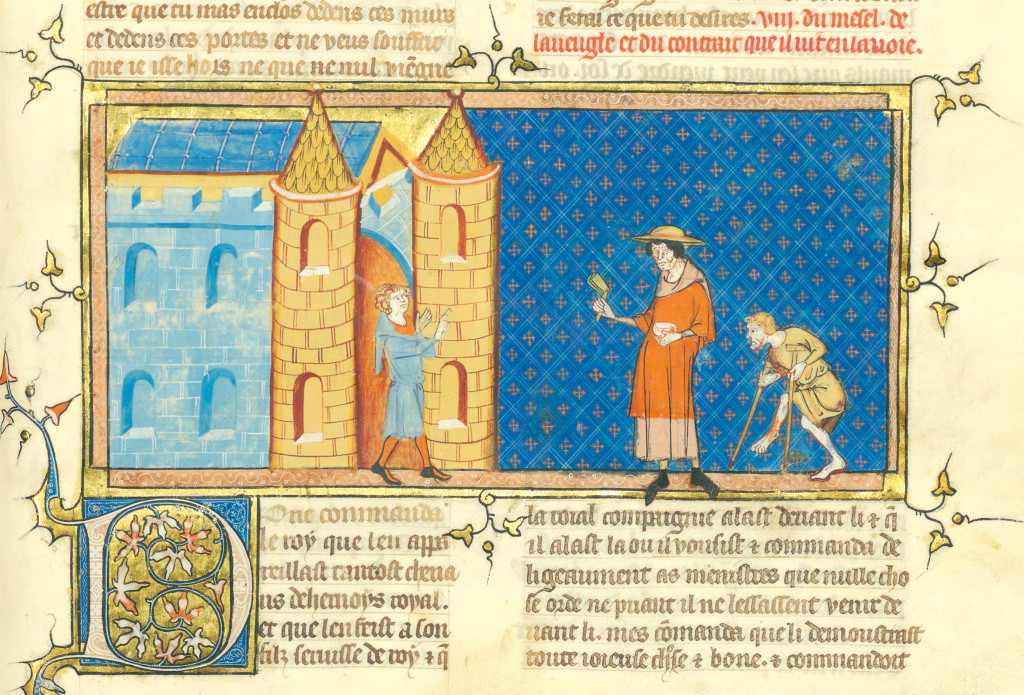 estre que tu mas enclos dedens ces murs
et dedens ces portes et ne veus souffrir
que ie isse hors ne que ne nul viẽgne
ie ferai ce que tu desires. viij. du mesel. de
laueugle et du contrait que il uit en la uoie.
Donc commanda
le roy que len appa
reillast tantost cheua
us de hernoys royal.
et que len feist a son
filz seruisse de roy ⁊ q̃
la roial compaignie alast deuant li ⁊ q̃
il alast la ou il vousist ⁊ commanda de
ligeaument as menistres que nulle cho
se orde ne puant il ne lessassent venir de
uant li. mes cõmanda que li demoustrast
toute ioieuse chose ⁊ bone. ⁊ commandoit